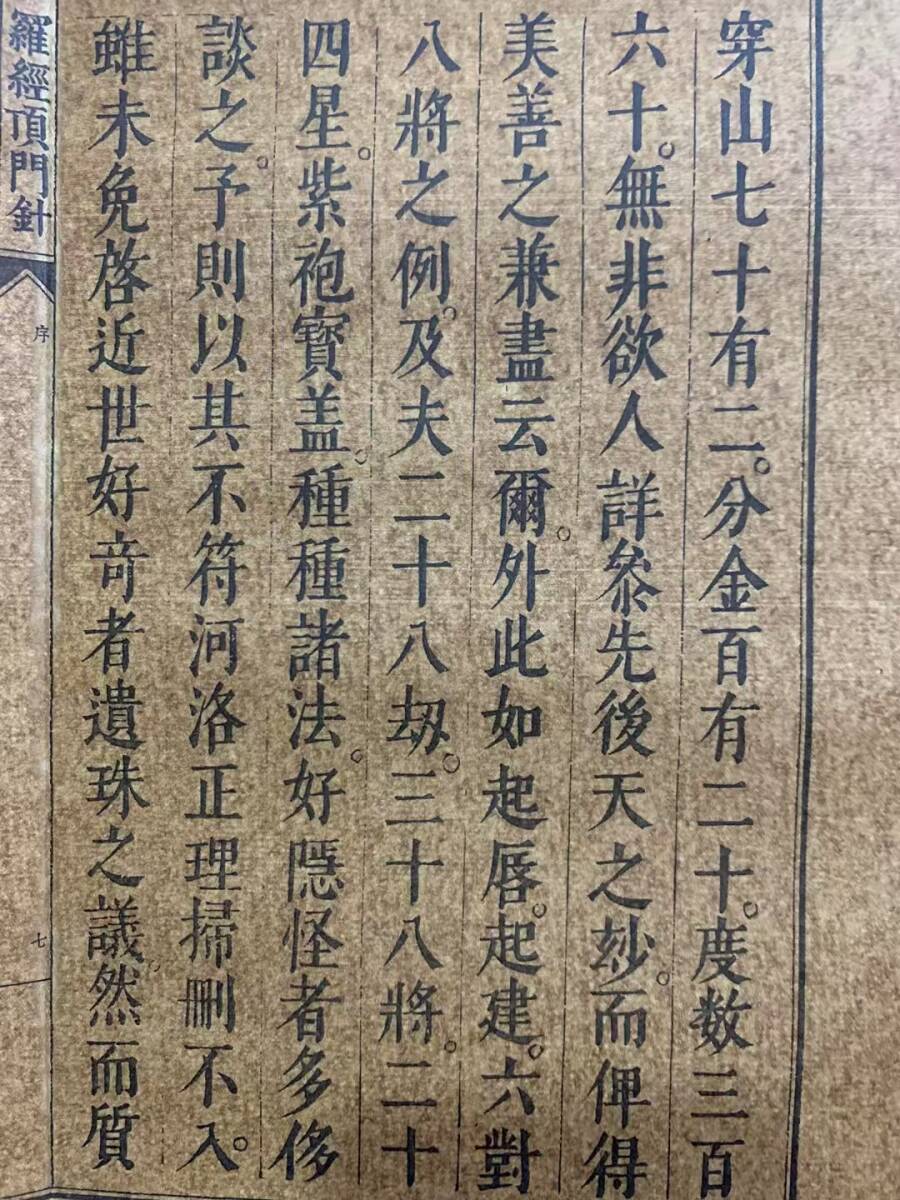 穿山七十有二。分金百有二十。度数三百
六十。無非欲人詳叅先後天之玅。而俾得
美善之兼盡云爾。外此如起唇。起建。六對
八將之例。及夫二十八刼。三十八將。二十
四星。紫袍寳盖。種種諸法。好隱怪者多侈
談之。予則以其不符河洛正理掃刪不入。
雖未免啓近世好竒者遺珠之議。然而质
羅經頂門針
序
七